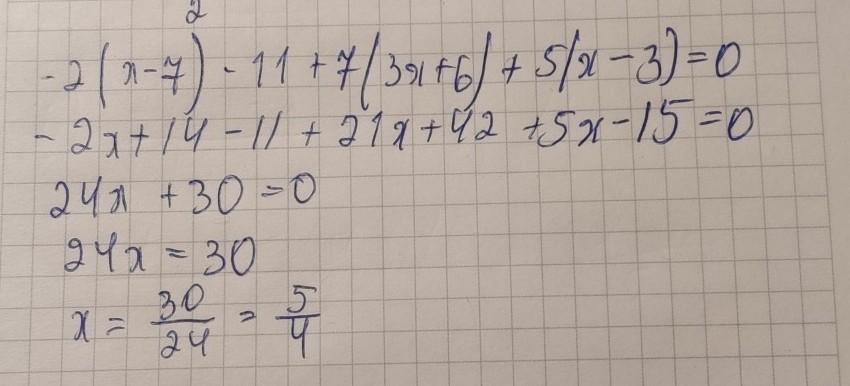 2
-2(x-7)-11+7(3x+6)+5(x-3)=0
-2x+14-11+21x+42+5x-15=0
24x+30=0
24x=30
x=30/24=5/4